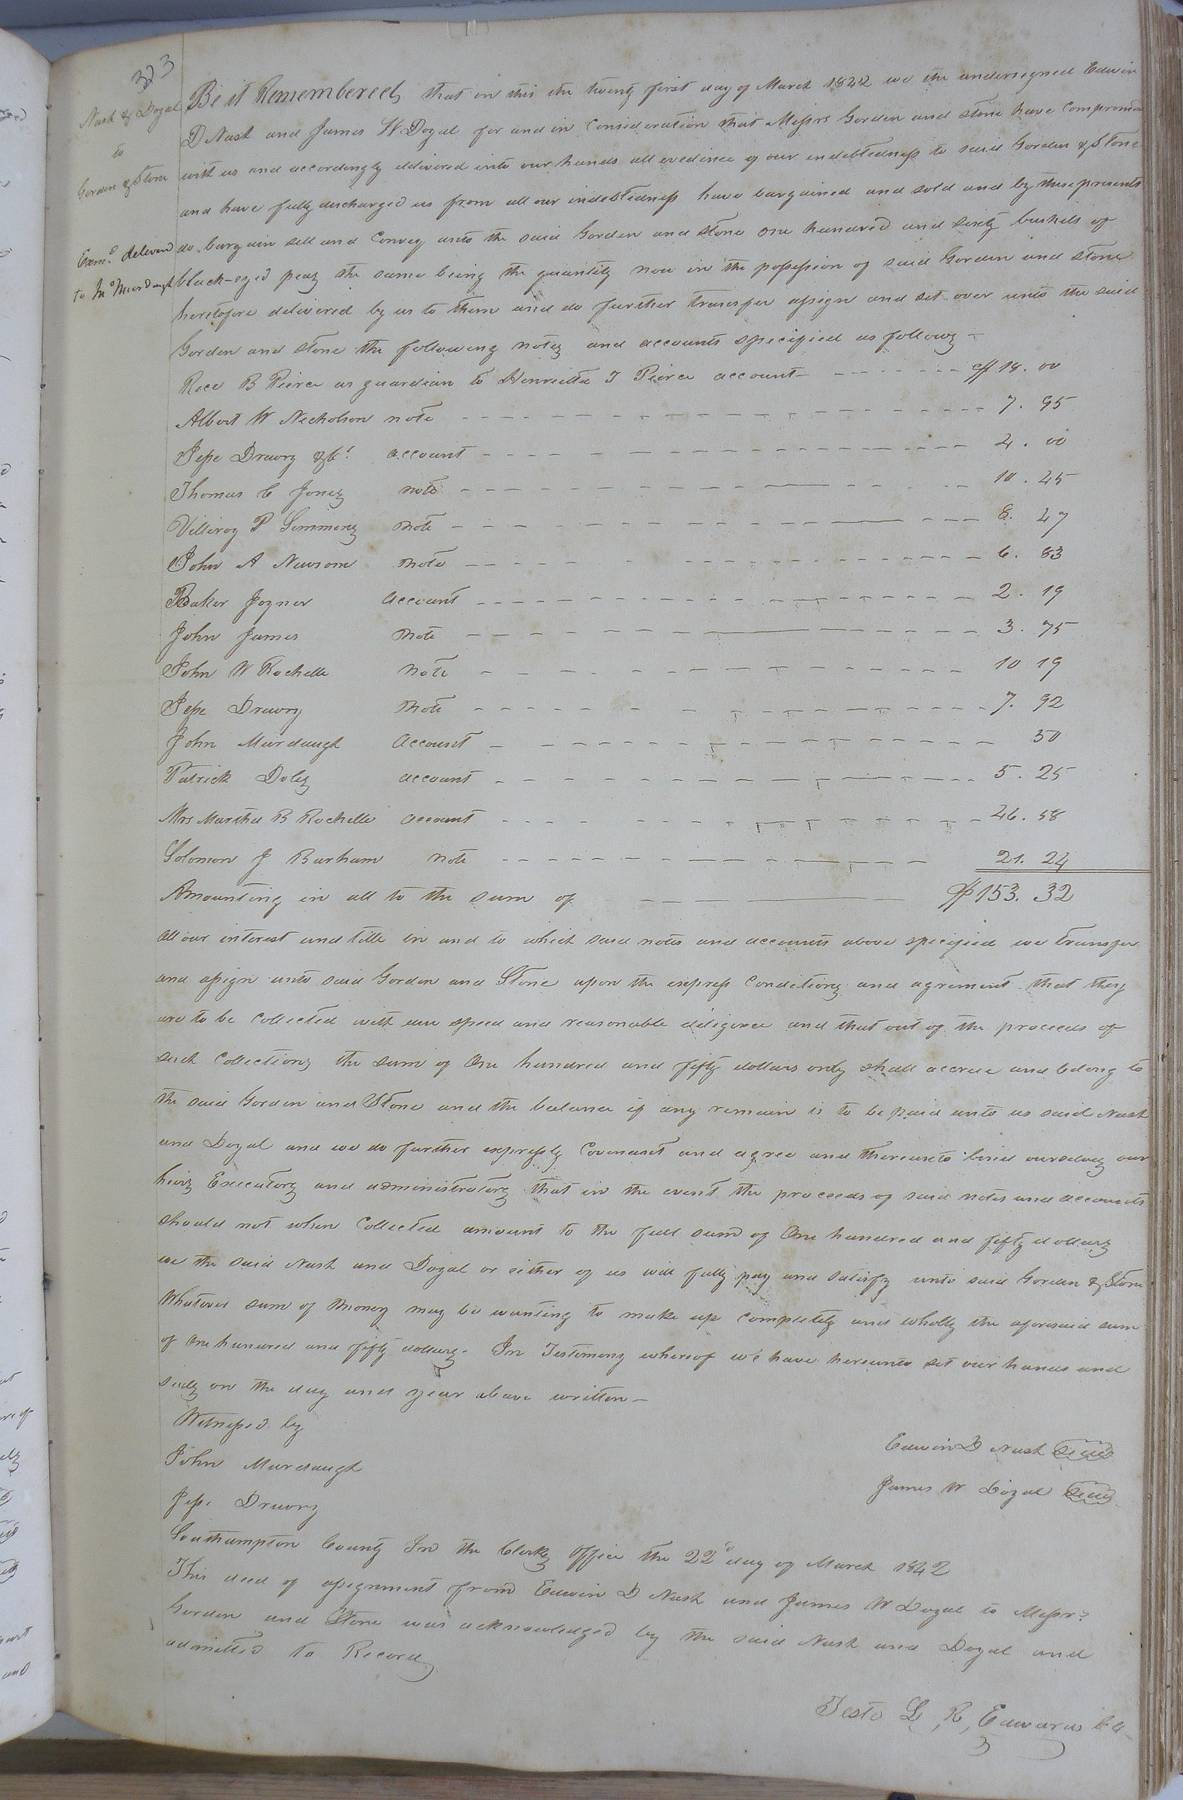 323
Nash & Doyal
to
Gordon & Stone
Exmd delivered
to Mr Murdaugh
Be it Remembered that on this the twenty first day of March 1842 we the undersigned Edwin
D Nash and James W. Doyal for and in Consideration that Messrs Gordon and Stone have Compromised
with us and accordingly delivered into our hands all evedince of our indebtedness to said Gordon & Stone
and have fully discharged us from all our indebtedness have bargained and sold and by these presents
do bargain sell and Convey unto the said Gordon and Stone one hundred and sixty bushels of
black-eyed peaz the same being the quantity now in the possession of said Gordon and Stone
heretofore delivered by us to them and do further transfer assign and set over unto the said
Gordon and Stone the following notes and accounts specified as follows -
Roce B Peirce as guardian to Henrietta T Peirce account - $18.00
Albert W Necholson note - 7.95
Jesse Drewry &Co. account - 4.00
Thomas C Jones note - 10.45
Villeroy P Simmons note - 8.47
John A Newsom note - 6.83
Baker Joyner account - 2.19
John James note - 3.75
John W Rochelle note - 10 19
Jesse Drewry note - 7.92
John Murdaugh account - 50
Patrick Doles account - 5.25
Mrs Martha B Rochelle account - 46.58
Solomon J Barham note - 21.24
Amounting in all to the sum of - $153.32
all our interest and title in and to which said notes and accounts above specified we transfer
and assign unto said Gordon and Stone upon the express Conditions and agrement that they
are to be collected with due speed and reasonable diligence and that out of the proceeds of
such Collections the sum of One hundred and fifty dollars only shall accrue and belong to
the said Gordon and Stone and the balance if any remain is to be paid unto us said Nash
and Doyal and we do further expressly Covenant and agree and thereunto bind ourselves our
heirs Executors and administrators that in the event the proceeds of said notes and accounts
should not when Collected amount to the full sum of One hundred and fifty dollars
we the said Nash and Doyal or either of us will fully pay and satisfy unto said Gordon & Stone
Whatever sum of money may be wanting to make up completely and wholly the aforesaid sum
of One hundred and fifty dollars. In Testimony whereof we have hereunto set our hands and
seals on the day and year above written -
Witnessed by
John Murdaugh
Jesse Drewry
Edwin D Nash Seal
James W Doyal Seal
Southampton County In the Clerks Office the 22d day of March 1842
This deed of assignment from Edwin D Nash and James W Doyal to Messrs
Gordon and Stone was acknowledged by the said Nash and Doyal and
admitted to Record
Teste L, R, Edwards CC